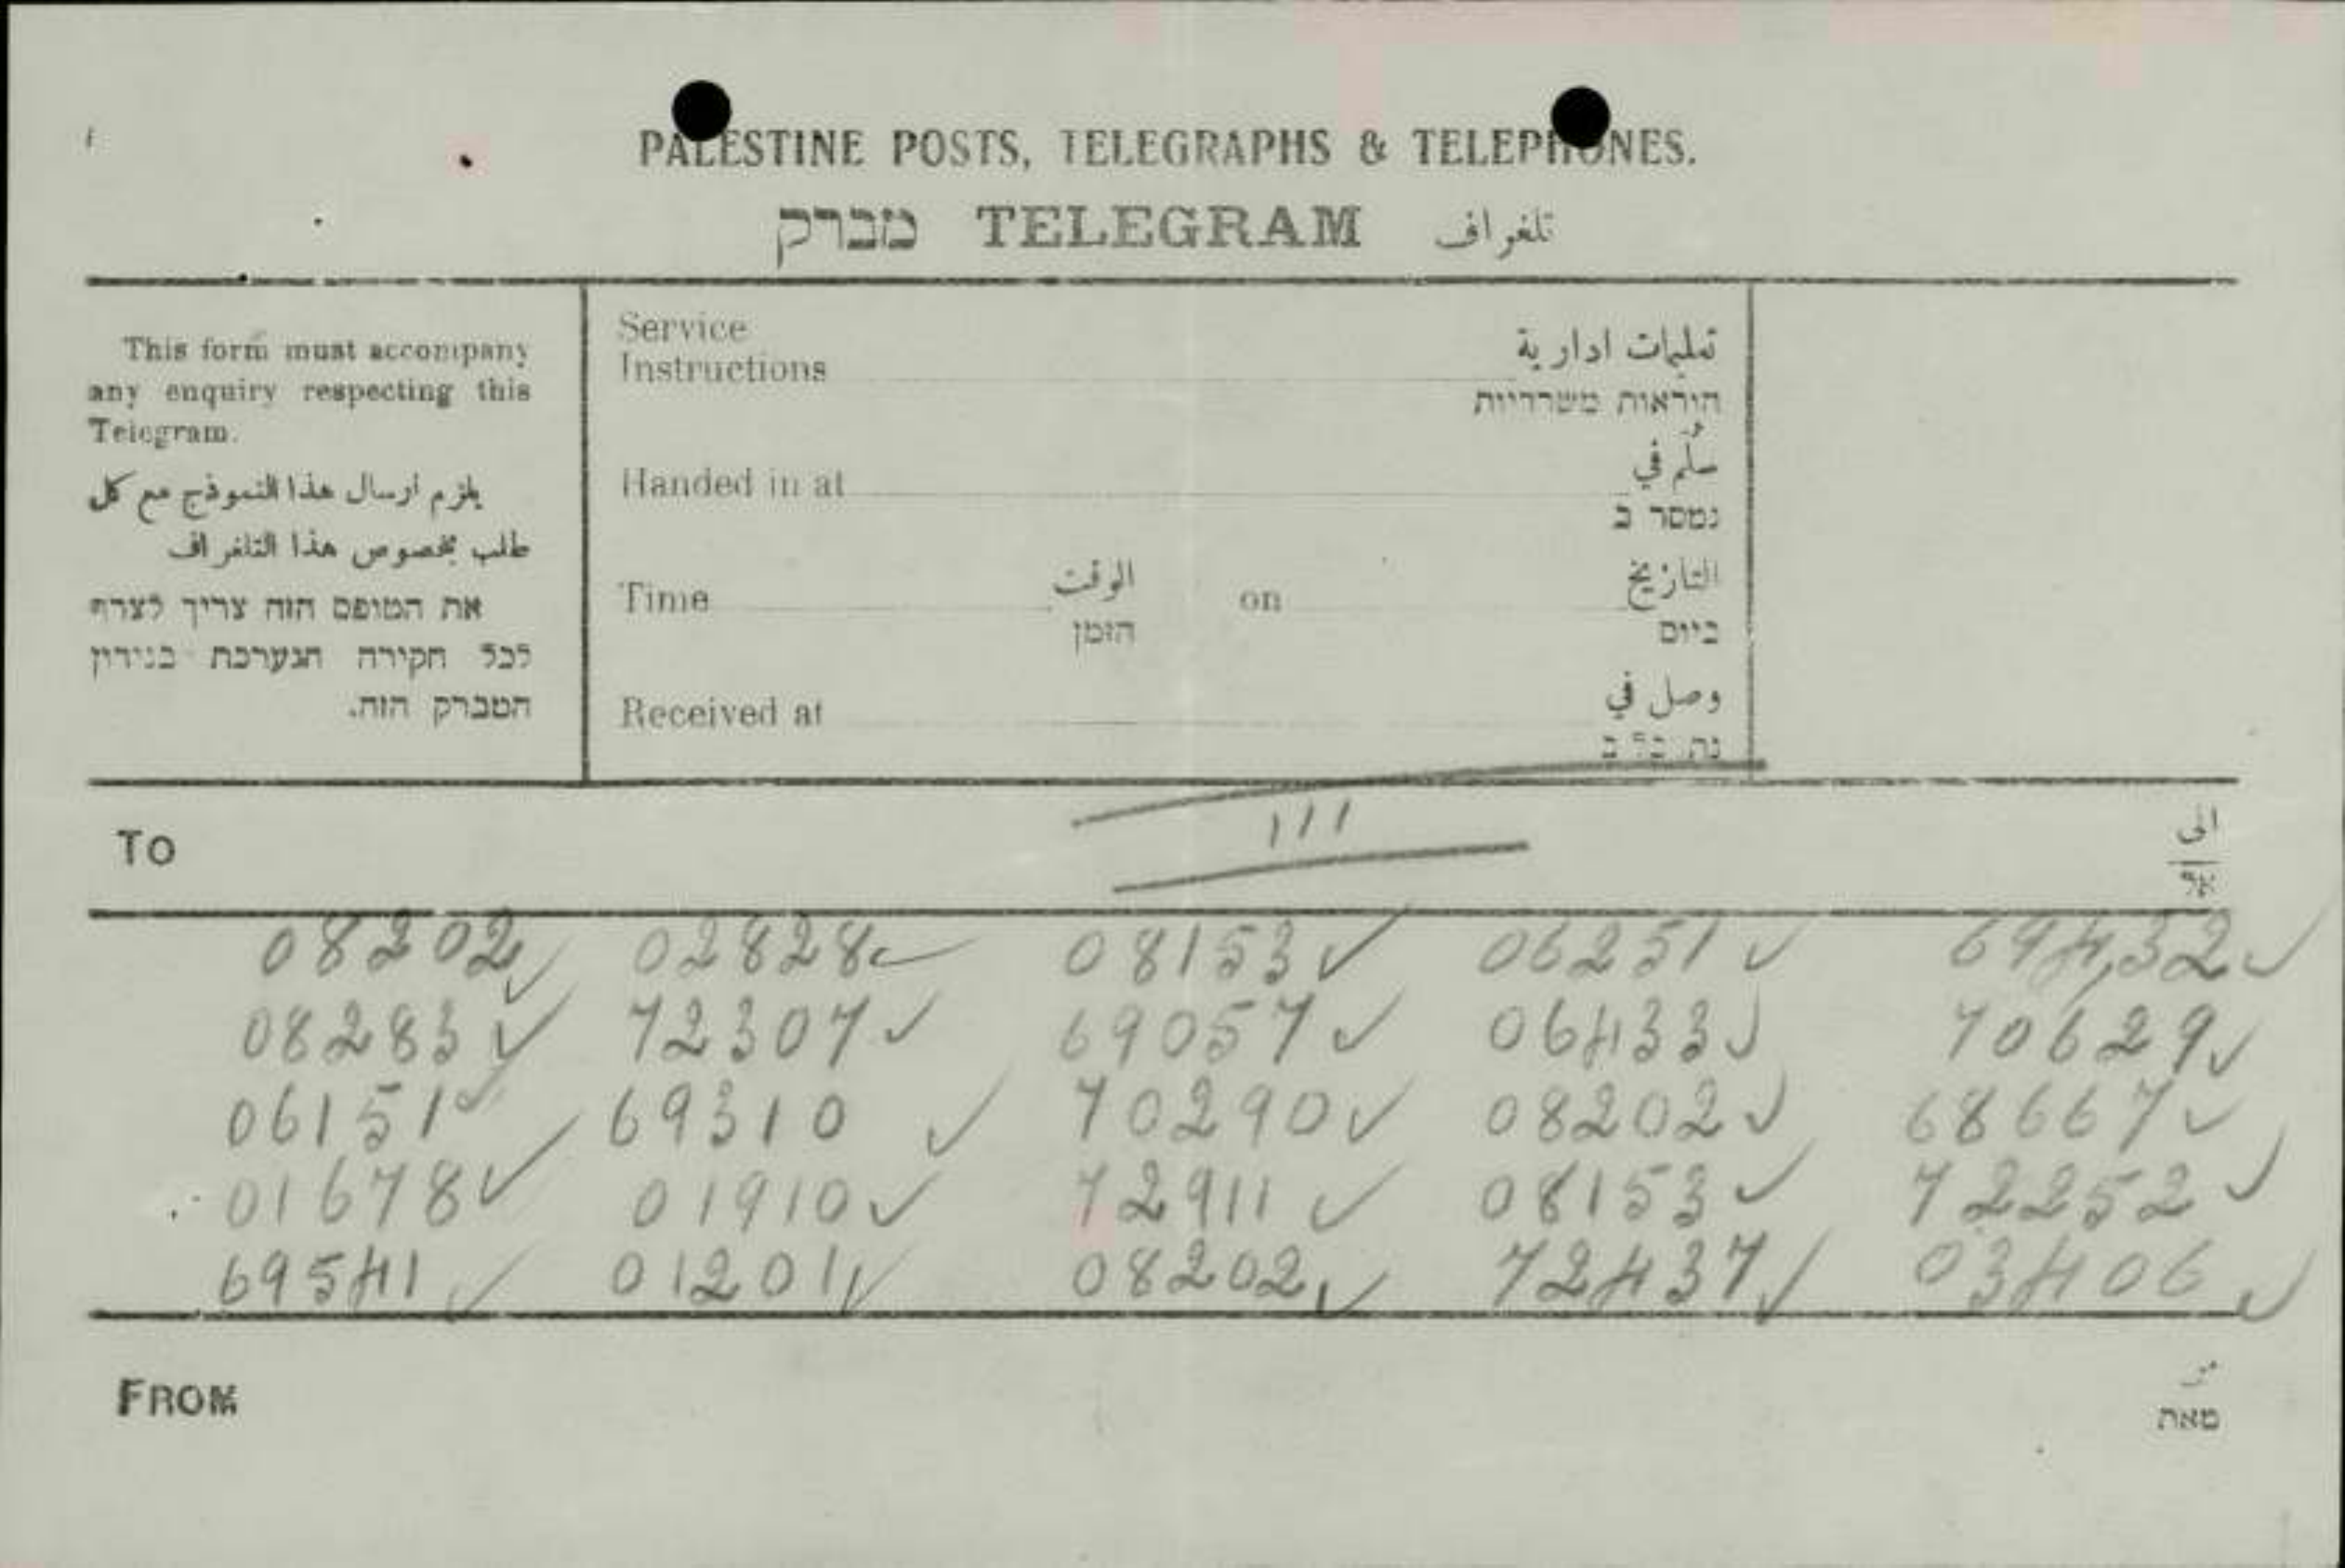 PALESTINE POSTS, TELEGRAPHS & TELEPHONES.
מברק TELEGRAM تلغراف
This form must accompany
any enquiry respecting this
Telegram.
يلزم ارسال هذا النموذج مع كل
طلب بخصوص هذا التلغراف
את הטופס הזה צריך לצרף
לכל חקירה הנערכת בנידון
המברק הזה.
Service
Instructions
تعليمات ادارية
הוראות משרדיות
Handed in at
سلّم في
נמסר ב
Time
الوقت
הזמן
on
التاريخ
ביום
Received at
وصل في
To
111
الى
אל
08202 02828 08153 06251 69432
08283 72307 69057 06433 70629
06151 69310 70290 08202 68667
01678 01910 72911 08153 72252
69541 01201 08202 72437 03406
FROM
من
מאת